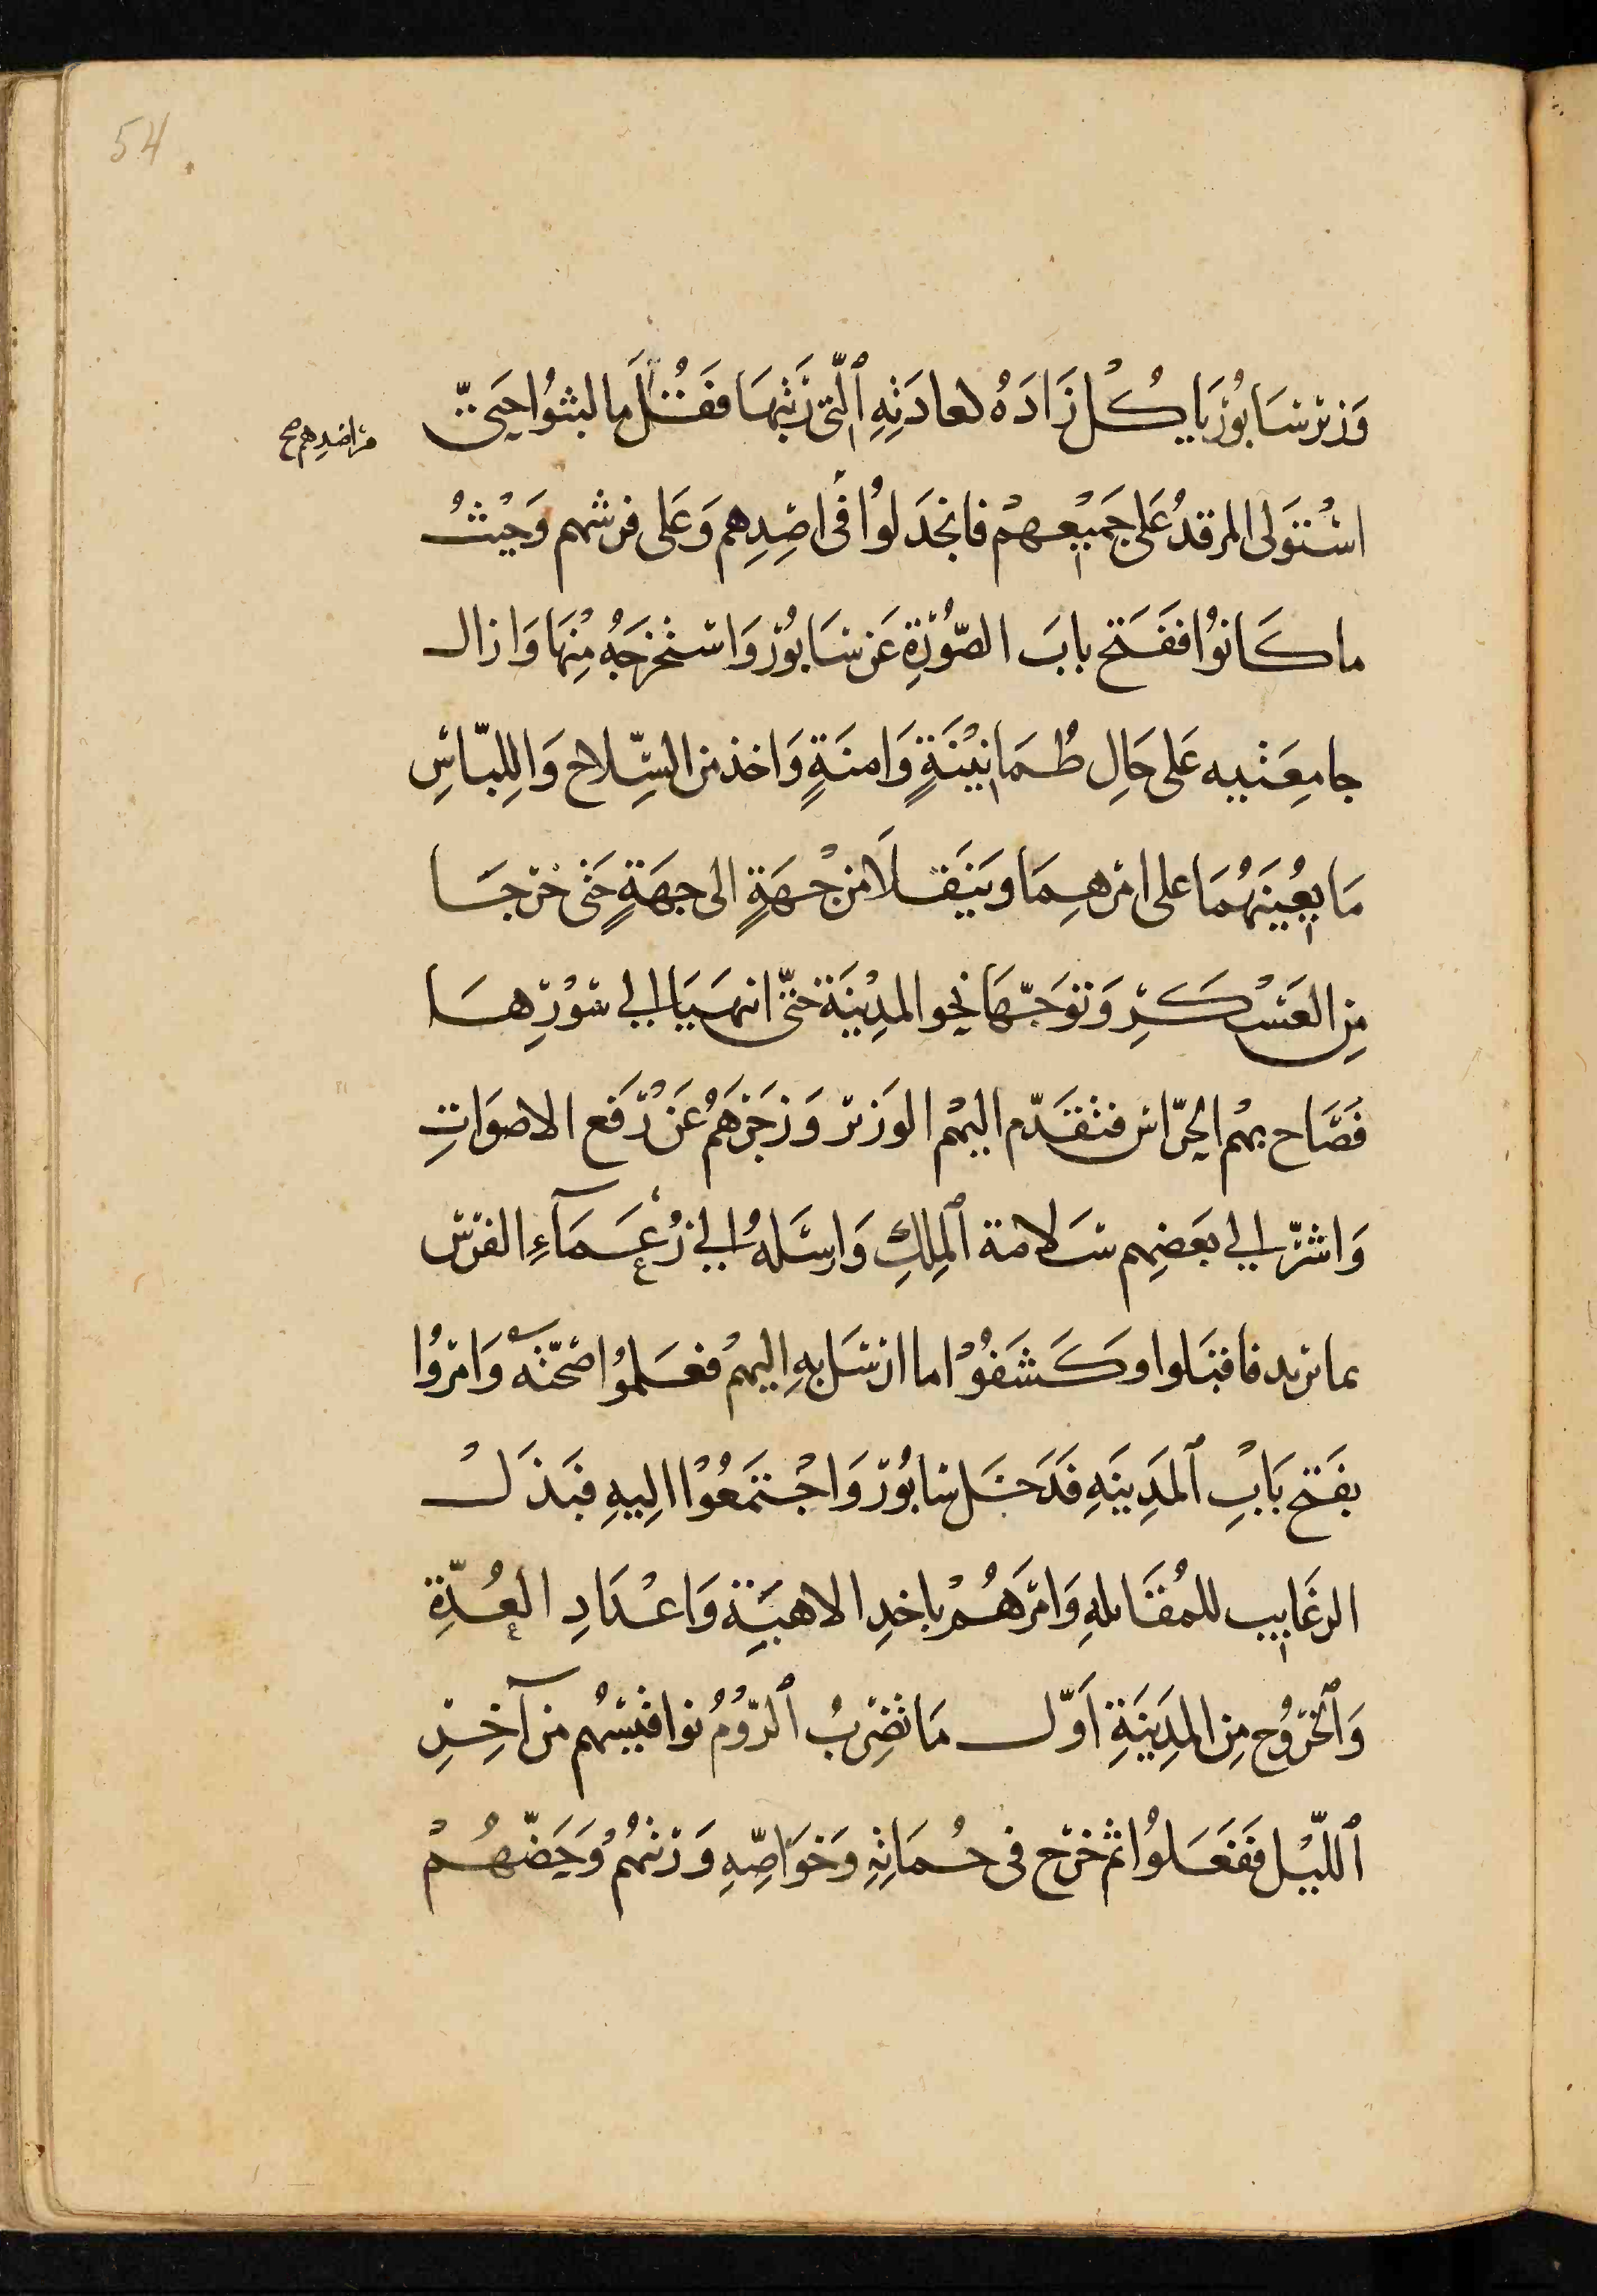 54
وَزير سَابُوْر يَاكُل زَادَهُ لعادَتِهِ ٱلَّتى رَتبهَا فقَتُلَ مالبثوُا حَتىّ
مراصدِهم صح
اسْتَوَلى المرقدُ عَلى جَميْعِهمْ فانجَدَلوُا فى اصِدِهم وَعَلى فرشهم وَحيْثُ
ما كَانوُا ففَتَح بابَ الصّوُرْةِ عَن سَابوُر وَاسْتْخرَجَهُ مِنْهَا وَازال
جامِعَتيه عَلى حَالِ طُمَانيْنَةٍ وَامنَةٍ وَاخذ من السِّلاح وَاللِبّاسِ
مَا يعُينَهُمَا على امْرهِمَا ويَنتَقلَا منْ جْهَةٍ الى جهَةٍ حَتى خرَجَا
مِن العَسْكَرِ وَتوَجّهَا نحو المدِيْنَة حَتّى انتهَيَا الي سُوْرِهَا
فَصَّاح بهمْ الحرّاس فتقَدّم اليهمْ الوَزير وَزجَرَهُم عَنْ رَفع الاصوَاتِ
وَاسَرّ الي بعَضِهم سَلامة ٱلملِكِ وَارسَلهُ الي زُعَمَآءِ الفرُس
بما يريد فاقبَلوا وكَشَفوُا ما ارسَل بهِ اليهمْ فعَلموُا صحّتهُ وَامرُوا
بفَتح بَابِ ٱلمَدِينَهِ فَدَخَل سَابُوْر وَاجْتمَعُوْا اليهِ فبَذَلْ
الرغَايب للمُقَاتلهِ وَامَرَهُمْ باخدِ الاهبَةِ وَاعْدَادِ العُدّةِ
وَٱلخرُوُج مِن المدَِينَةِ اَوّل مَا تضِربُ ٱلرّوُمُ نواقيسهُم من آخِرِ
ٱللّيْل فَفعَلوُا ثم خرج فى حُمَاتِهِ وَخَوَاصِّهِ وَرَتبهُمْ وَحَضّهُمْ